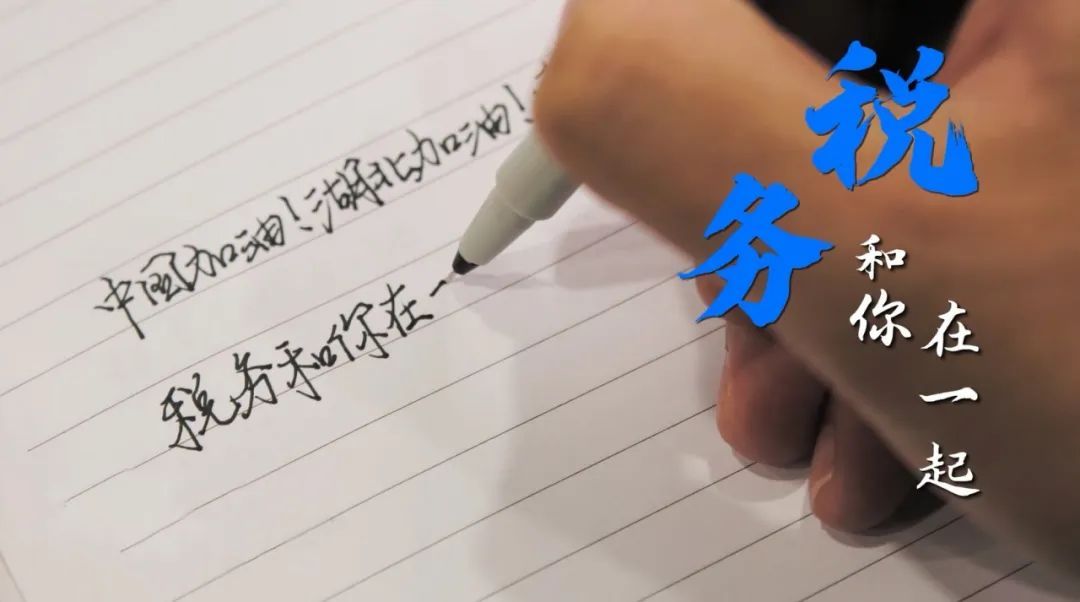 中国加油！湖北加油！
税务和你在一
税务
和你
在一起